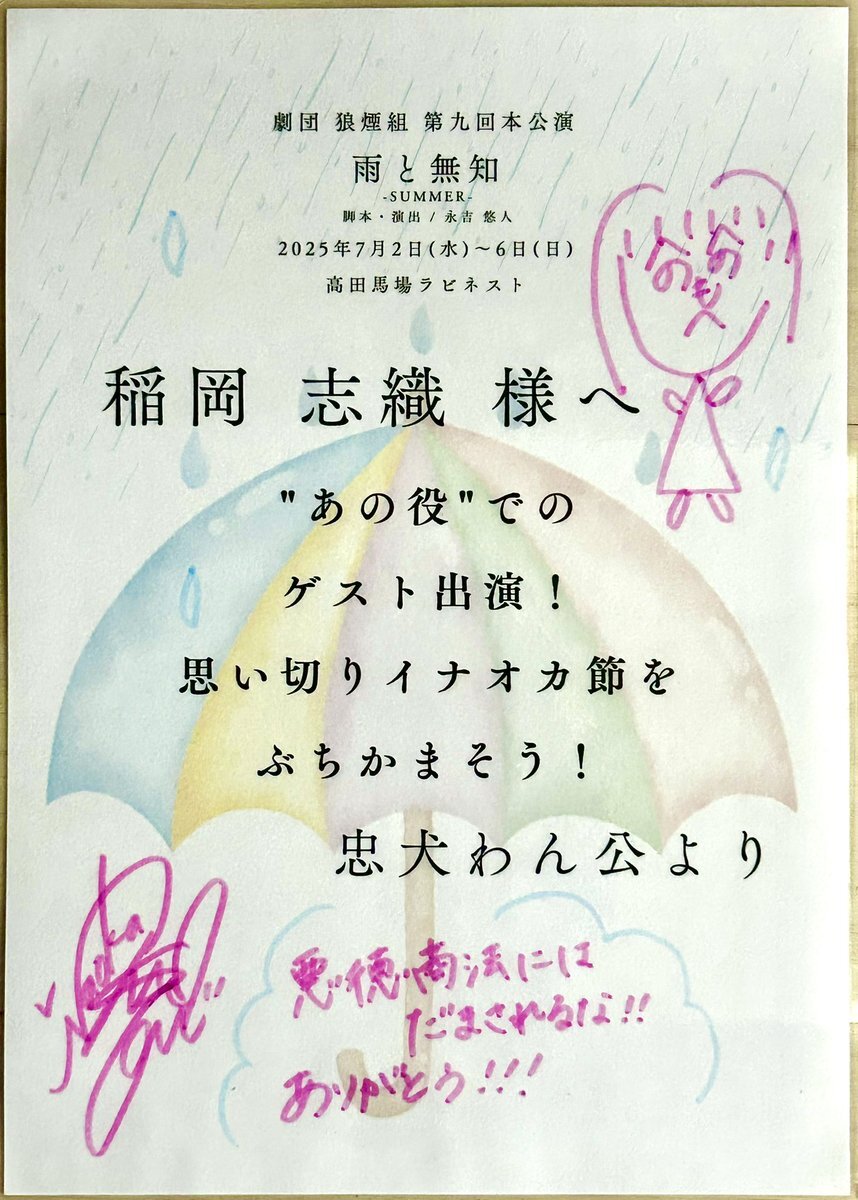 劇団 狼煙組 第九回本公演
雨と無知
-SUMMER-
脚本・演出 / 永吉 悠人
2025年7月2日(水)～6日(日)
高田馬場ラビネスト
稲岡 志織 様へ
"あの役"での
ゲスト出演！
思い切りイナオカ節を
ぶちかまそう！
忠犬わん公より
悪徳商法には
だまされるな!!
ありがとう!!!